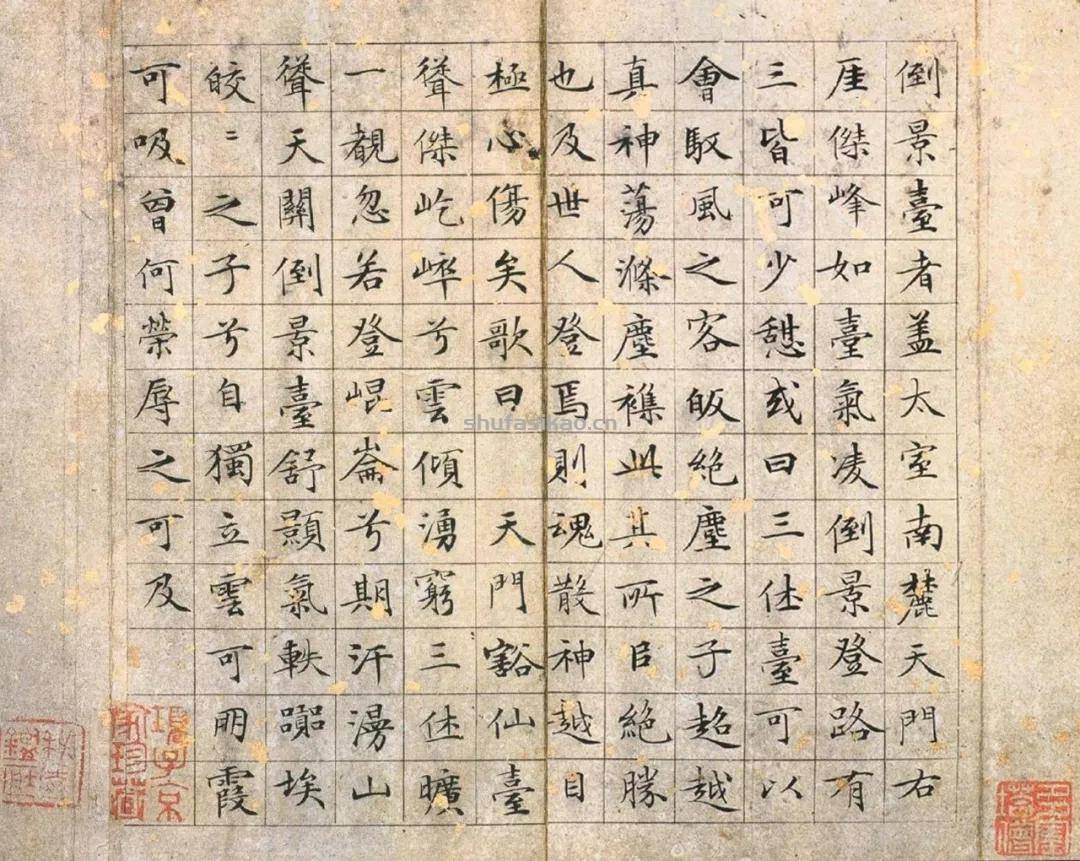 倒景臺者盖太室南麓天門右
厓傑峰如臺氣凌倒景登路有
三皆可少憇或曰三休臺可以
會馭風之客皈絶塵之子超越
真神蕩滌塵襟此其所以絶勝
也及世人登焉則魂散神越目
極心傷矣歌曰天門豁仙臺
聳傑屹崒兮雲傾湧窮三休曠
一覩忽若登崐崙兮期汗漫山
聳天關倒景臺舒顥氣軼躢埃
皎〻之子兮自獨立雲可朋霞
可吸曾何榮辱之可及
shufasikao.cn
項子京家珍藏